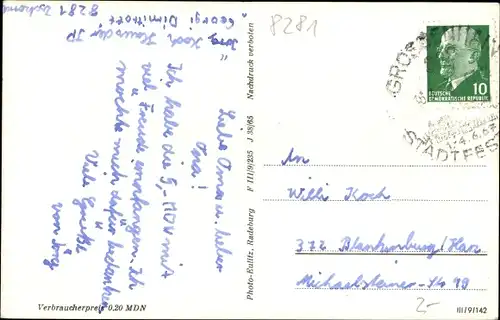 Jörg Koch Haus der JP
"Georgi Dimitroff"
8281 Zschorna
Liebe Oma u. lieber
Opa!
Ich habe die 5,- MDN mit
viel Freude empfangen. Ich
möchte mich dafür bedanken
Viele Grüße
von Jörg
Verbraucherpreis 0,20 MDN
Photo-Kulitz, Radeburg F III/9/235 J 38/65 Nachdruck verboten
8281
10
DEUTSCHE
DEMOKRATISCHE REPUBLIK
STADTFEST
An
Willi Koch
372 Blankenburg/Harz
Michaelsteiner-Str 49
2-
III/9/142